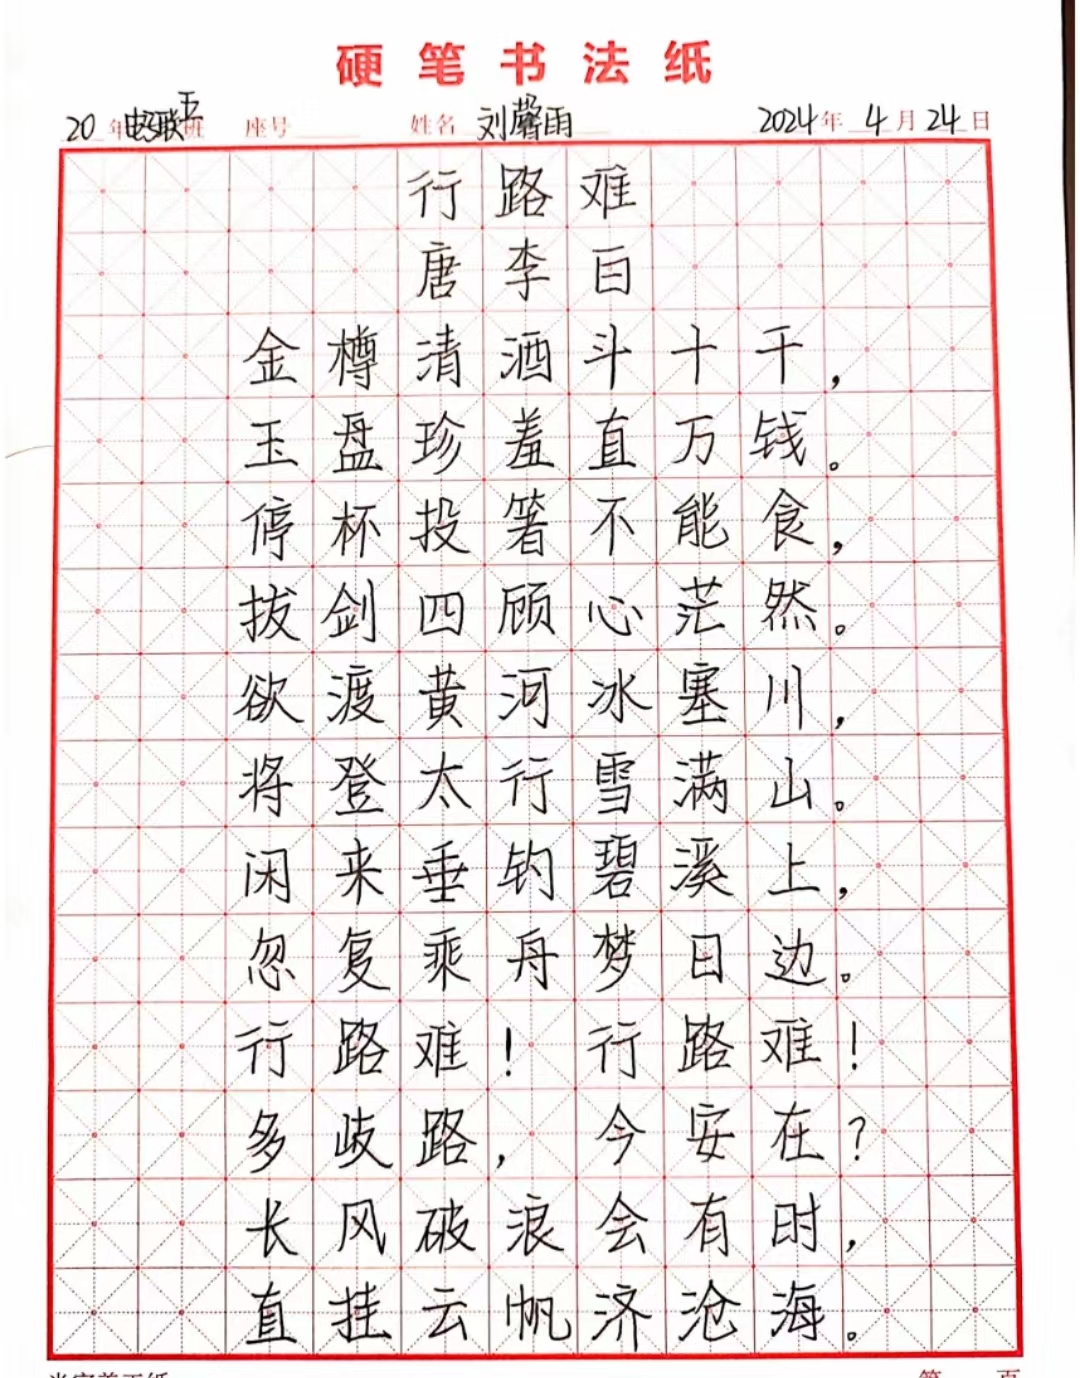 硬笔书法纸
20 年 班 座号 姓名 刘馨雨 2024年 4月24日
行路难
唐李白
金樽清酒斗十千，
玉盘珍羞直万钱。
停杯投箸不能食，
拔剑四顾心茫然。
欲渡黄河冰塞川，
将登太行雪满山。
闲来垂钓碧溪上，
忽复乘舟梦日边。
行路难！行路难！
多歧路，今安在？
长风破浪会有时，
直挂云帆济沧海。